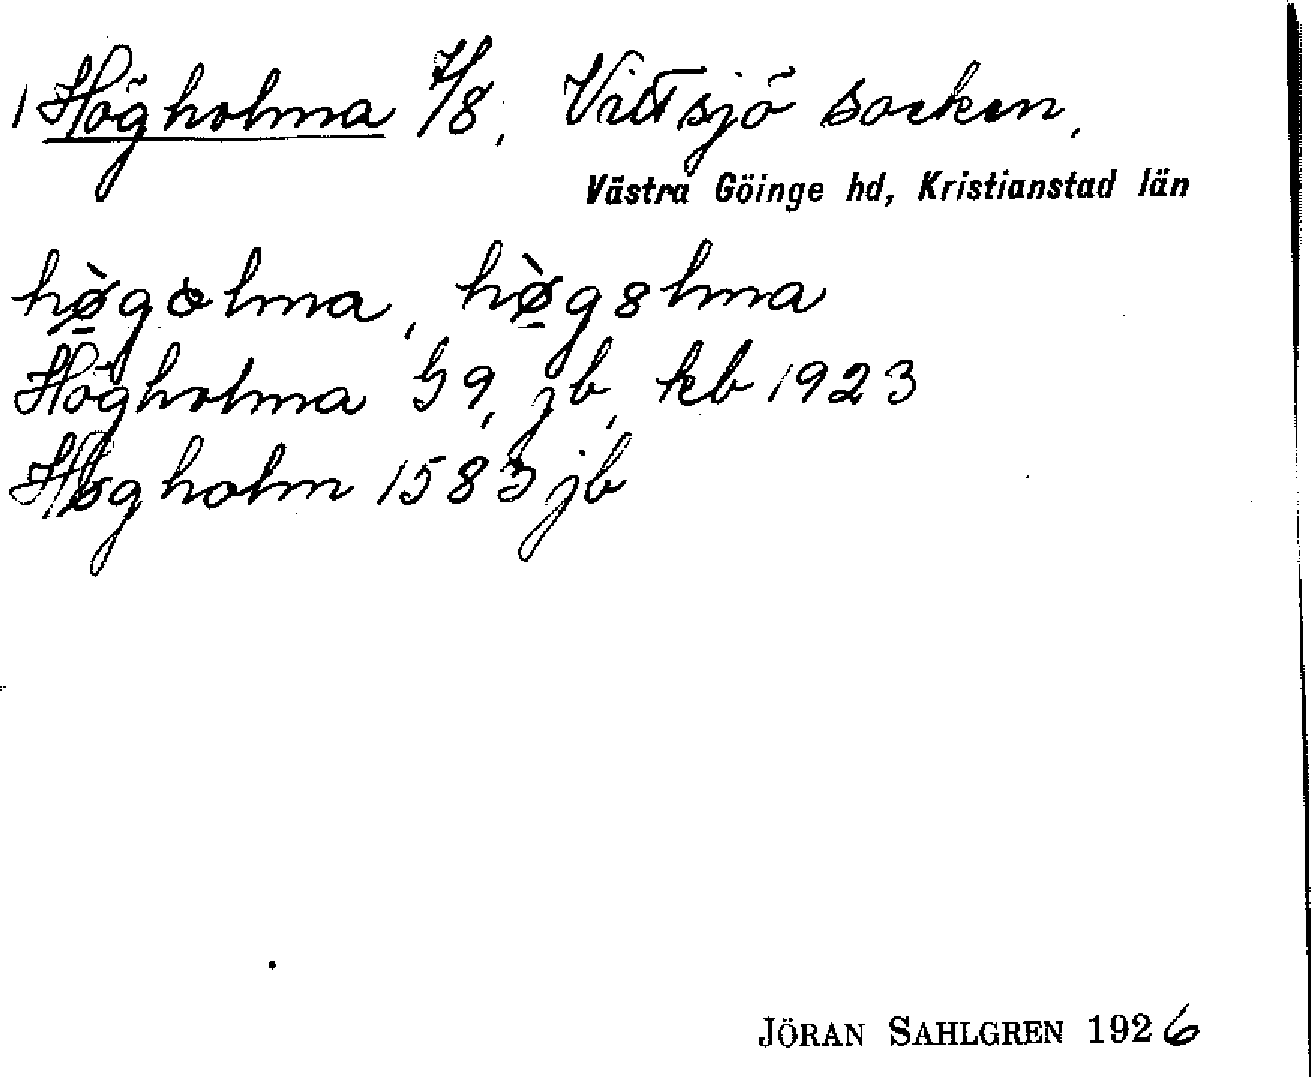 1 Högholma 7/8, Vittsjö socken,
Västra Göinge hd, Kristianstad län
hø̀gɔlma, hø̀gəlma
Högholma G9, jb, kb 1923
Høgholm 1583 jb
JÖRAN SAHLGREN 1926